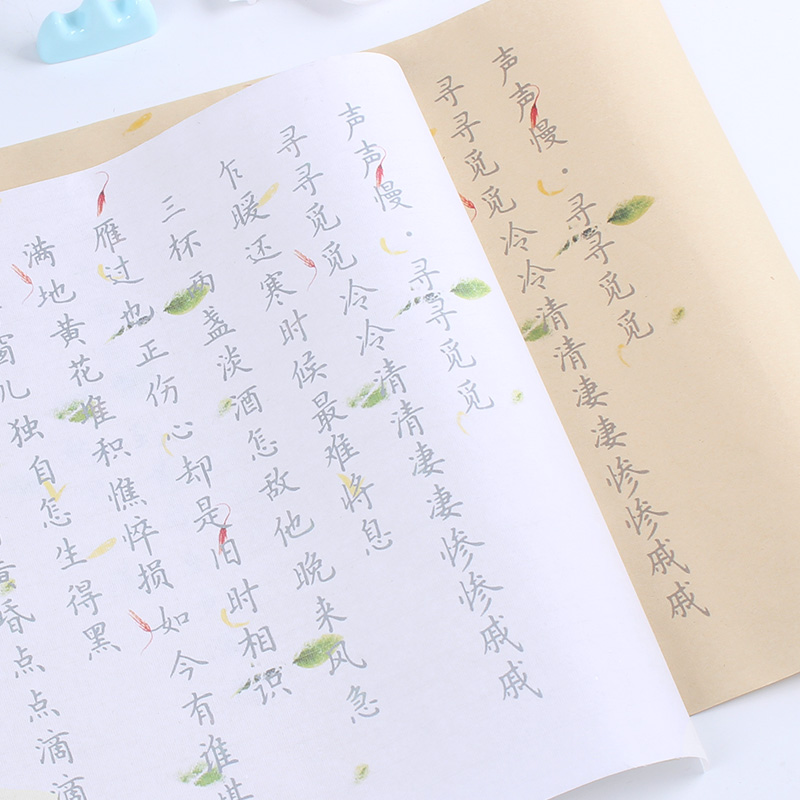 声声慢·寻寻觅觅
寻寻觅觅冷冷清清凄凄惨惨戚戚
声声慢·寻寻觅觅
寻寻觅觅冷冷清清凄凄惨惨戚戚
乍暖还寒时候最难将息
三杯两盏淡酒怎敌他晚来风急
雁过也正伤心却是旧时相识
满地黄花堆积憔悴损如今有谁堪
窗儿独自怎生得黑
昏点点滴滴